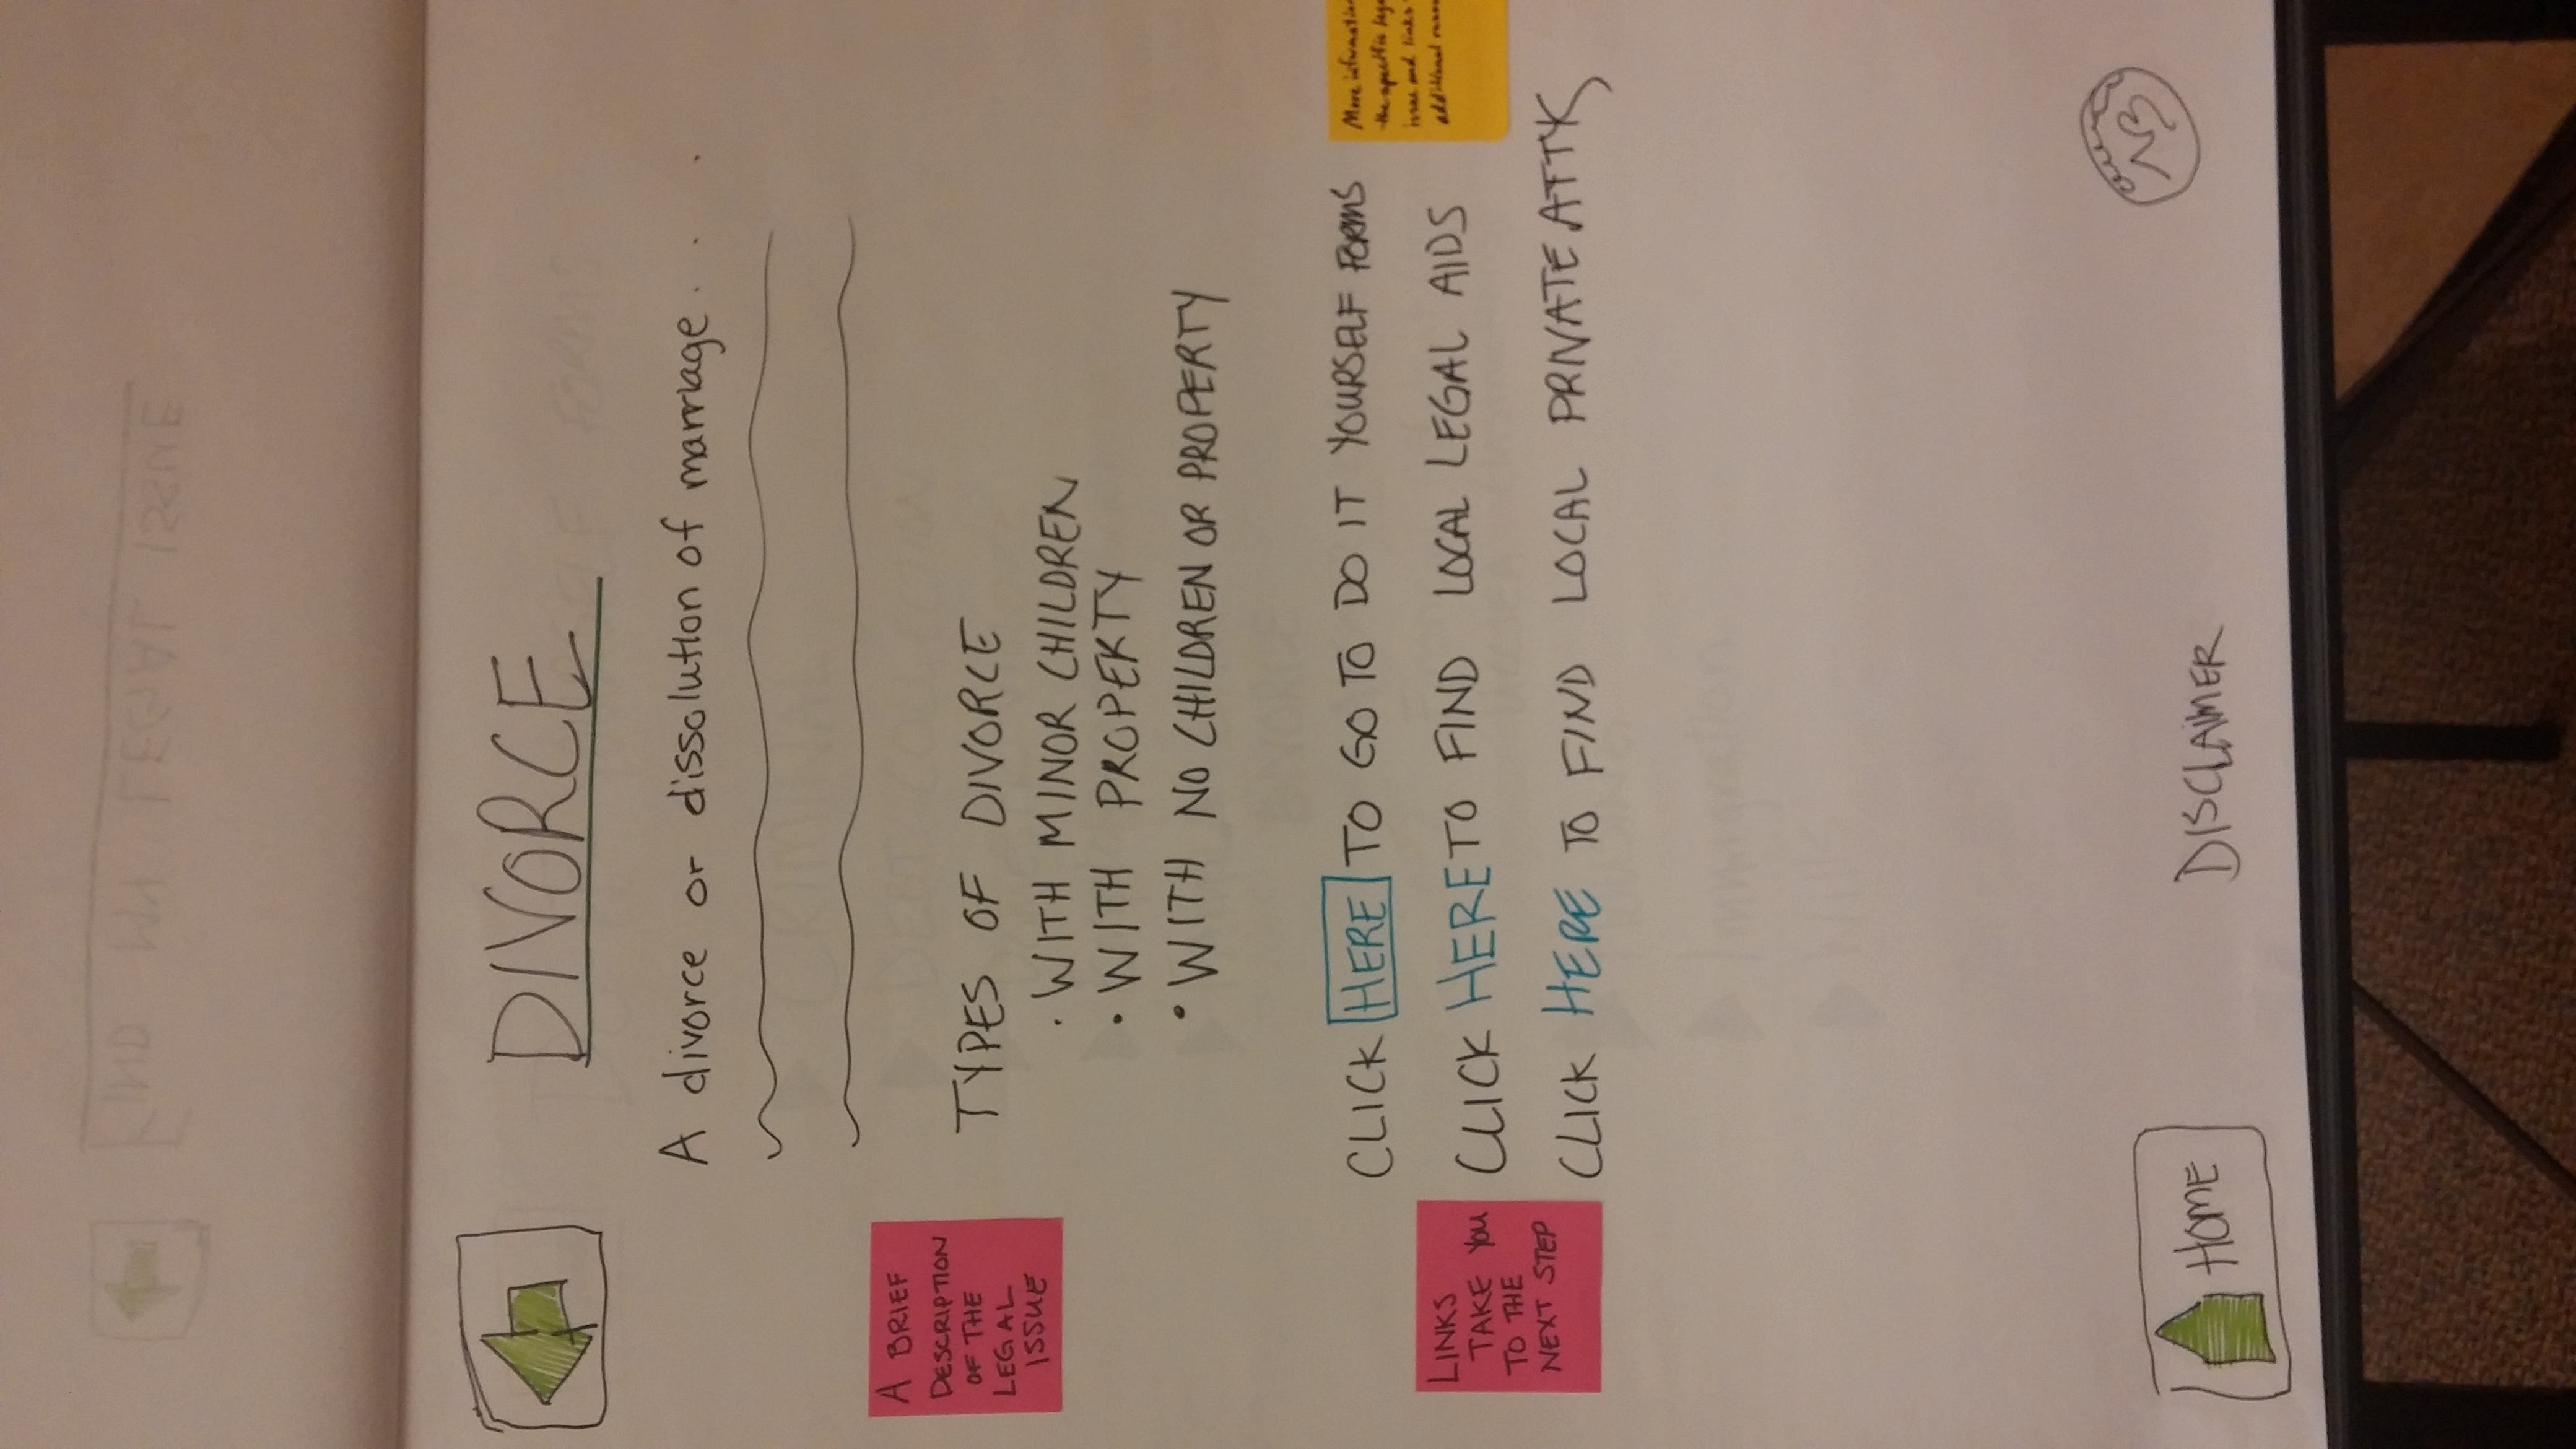 DIVORCE
A divorce or dissolution of marriage. . . .
TYPES OF DIVORCE
· WITH MINOR CHILDREN
• WITH PROPERTY
• WITH NO CHILDREN OR PROPERTY
A BRIEF
DESCRIPTION
OF THE
LEGAL
ISSUE
CLICK HERE TO GO TO DO IT YOURSELF FORMS
CLICK HERE TO FIND LOCAL LEGAL AIDS
CLICK HERE TO FIND LOCAL PRIVATE ATTY
LINKS
TAKE YOU
TO THE
NEXT STEP
More information
the specific
issue and links
additional
HOME
DISCLAIMER
FIND MY LEGAL ISSUE